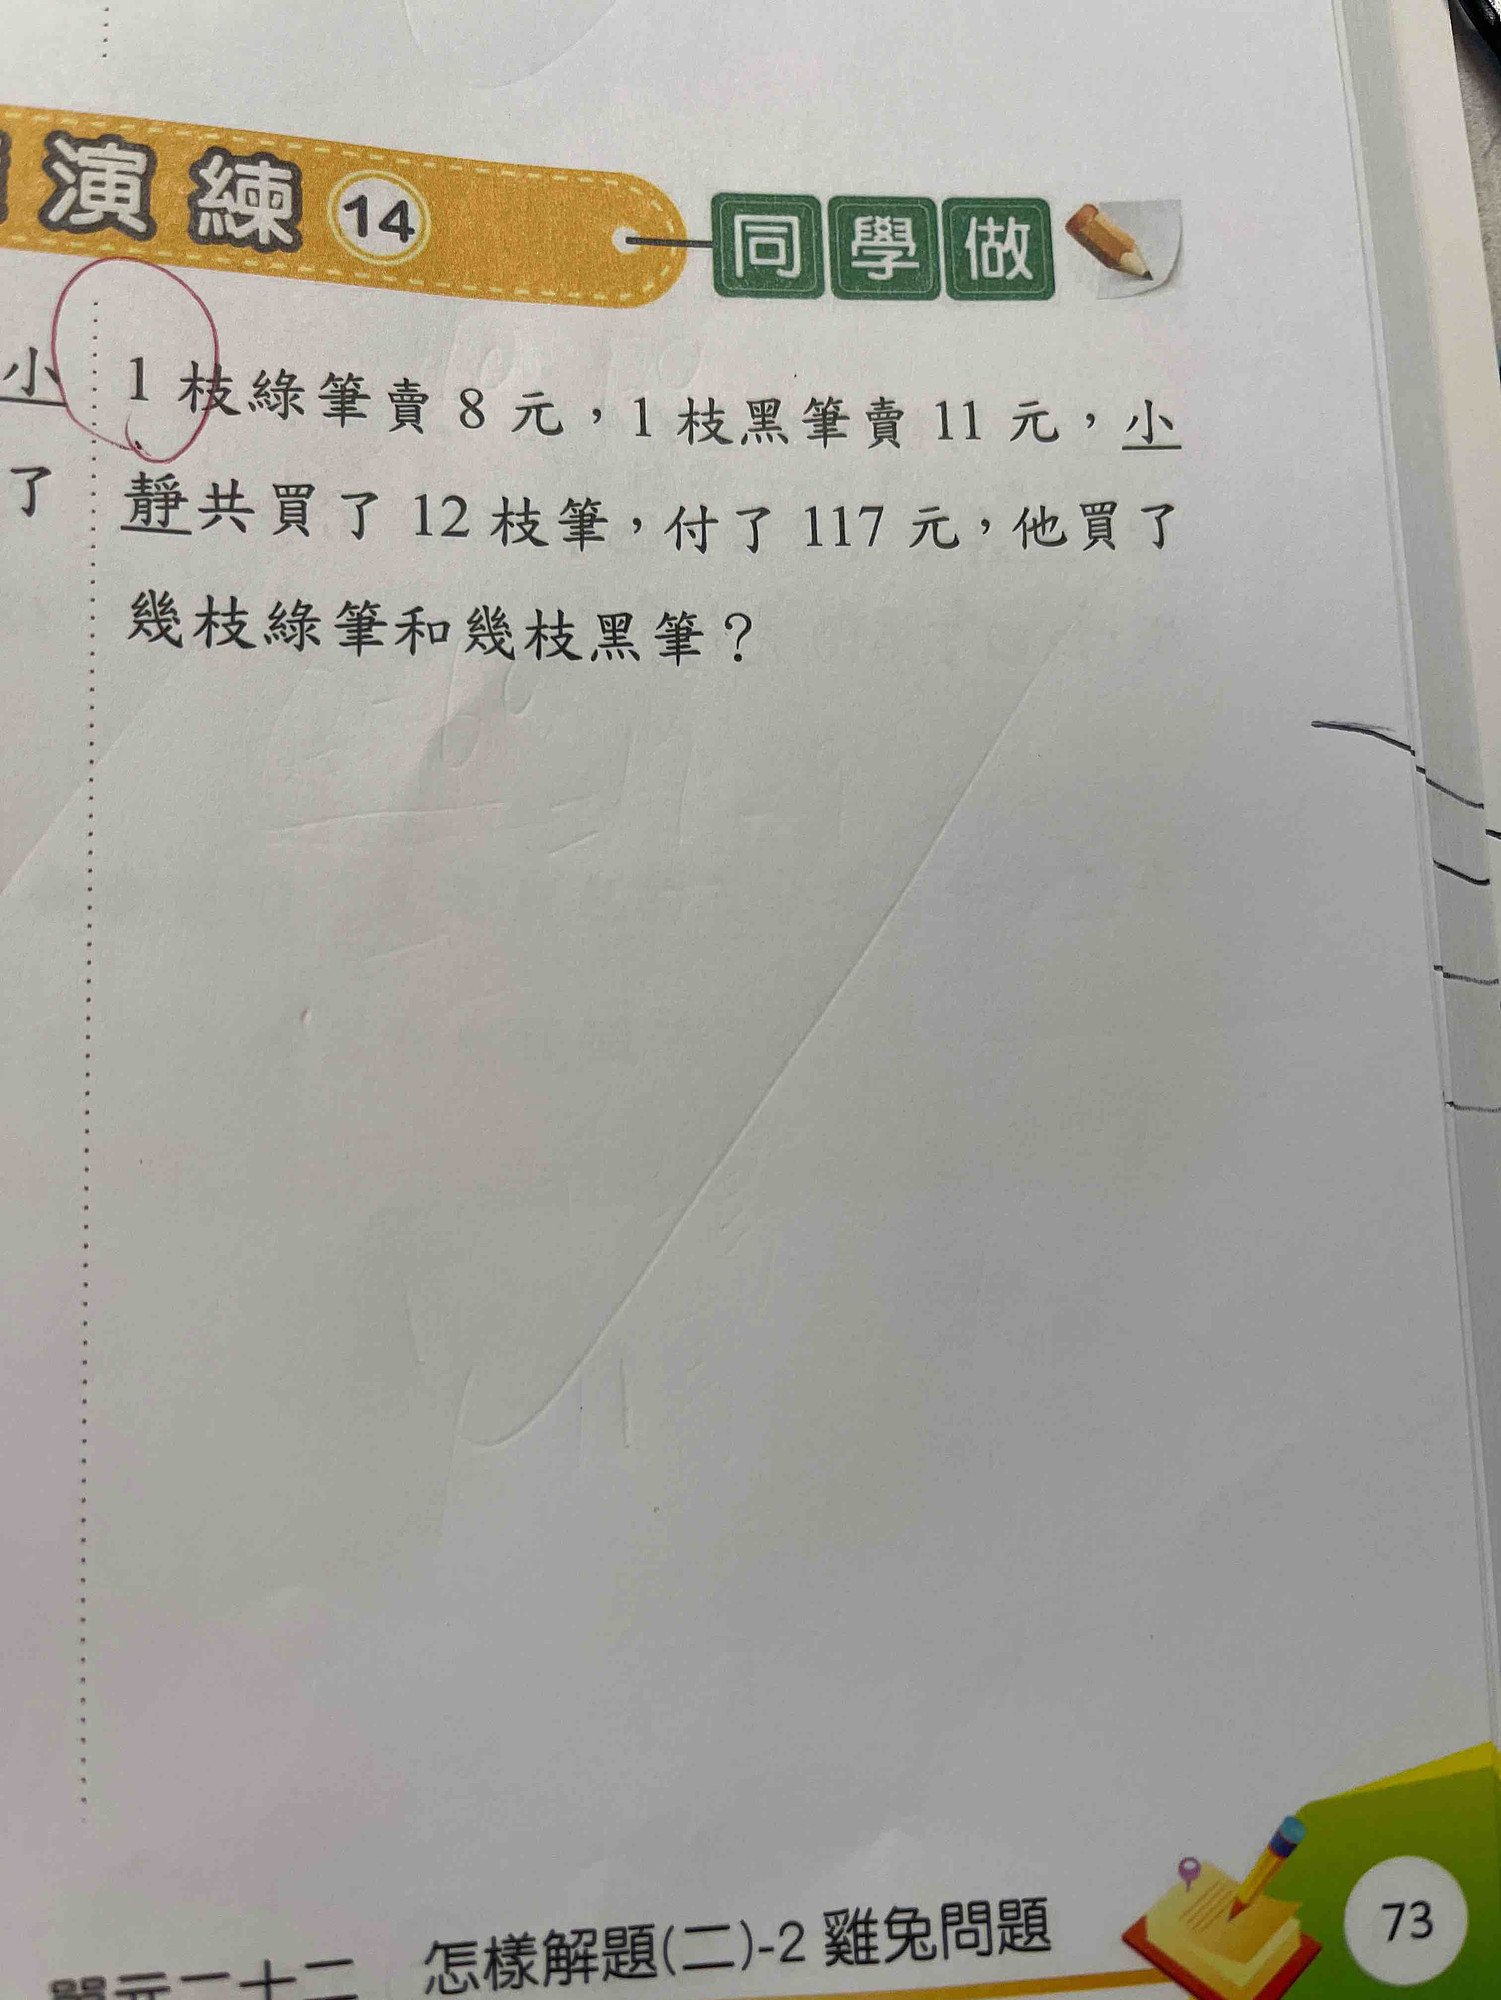 演練 14 同學做
小
1 枝綠筆賣 8 元，1 枝黑筆賣 11 元，小
了
靜共買了 12 枝筆，付了 117 元，他買了
幾枝綠筆和幾枝黑筆？
單元二十二 怎樣解題(二)-2 雞兔問題
73